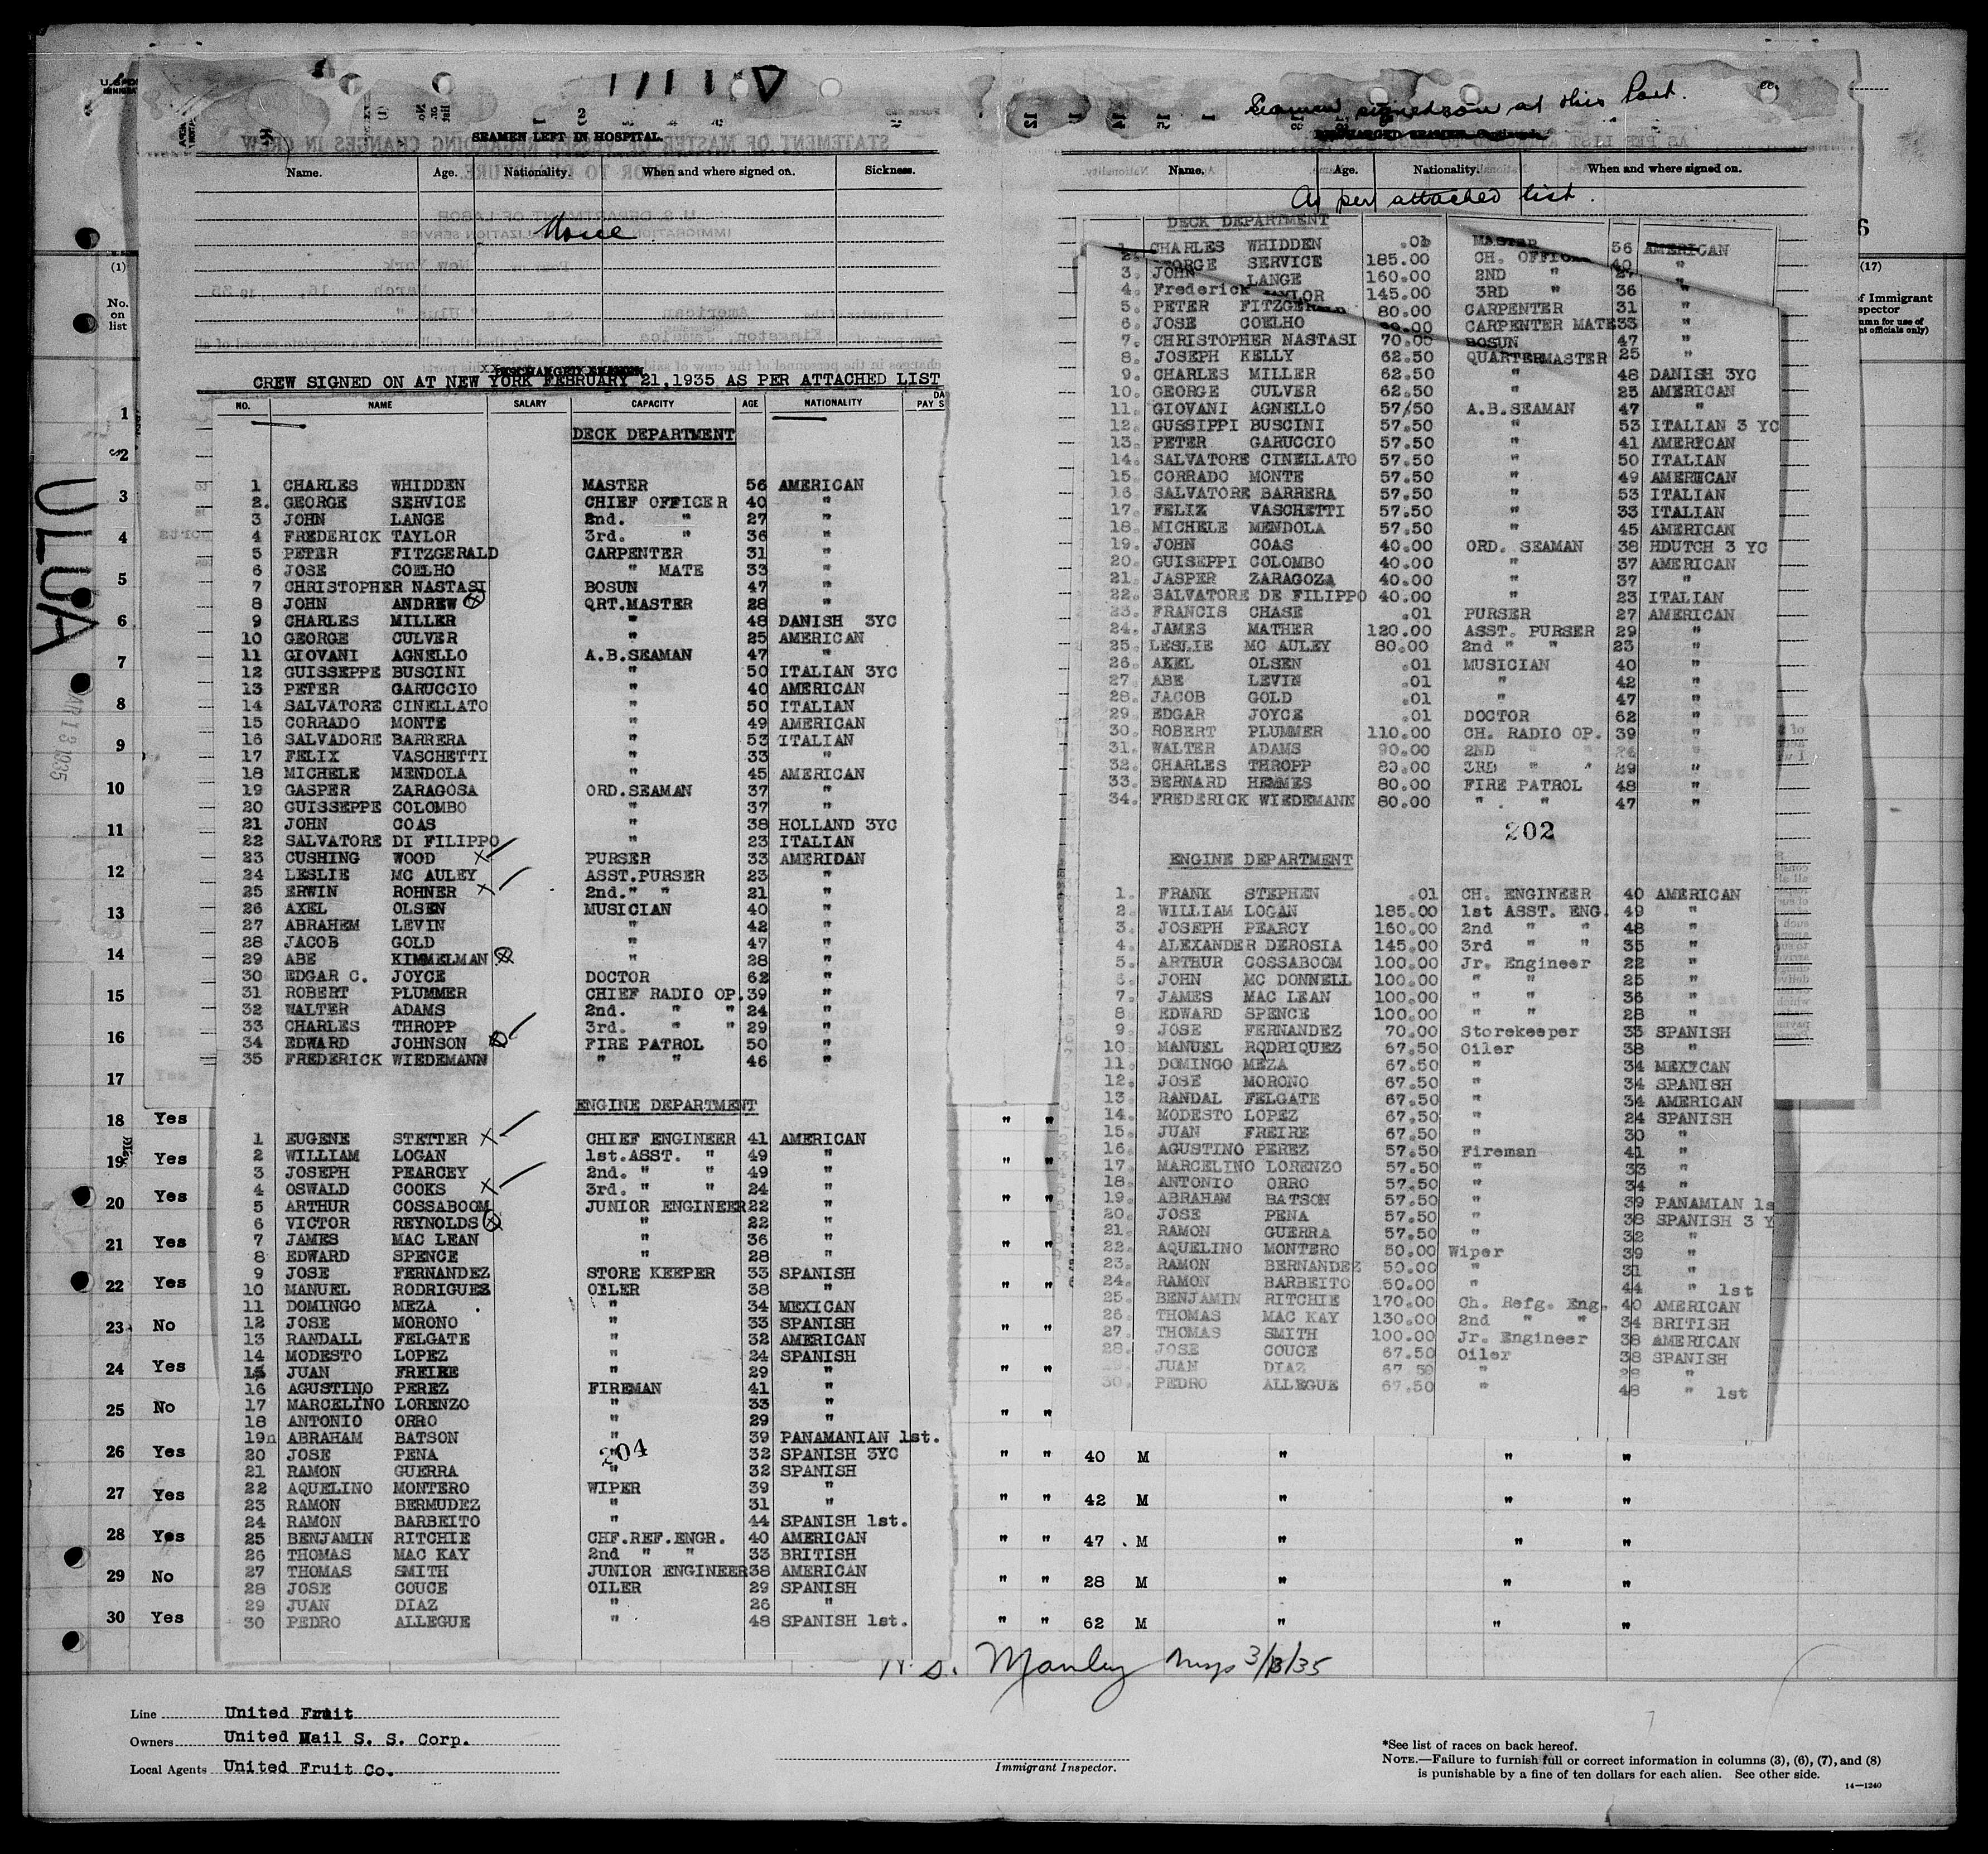 SEAMEN LEFT IN HOSPITAL
Name. Age. Nationality. When and where signed on. Sickness.
None
CREW SIGNED ON AT NEW YORK FEBRUARY 21,1935 AS PER ATTACHED LIST
NO. NAME SALARY CAPACITY AGE NATIONALITY DA
PAY S
DECK DEPARTMENT
1 CHARLES WHIDDEN MASTER 56 AMERICAN
2. GEORGE SERVICE CHIEF OFFICER 40 "
3 JOHN LANGE 2nd. " 27 "
4 FREDERICK TAYLOR 3rd. " 36 "
5 PETER FITZGERALD CARPENTER 31 "
6 JOSE COELHO " MATE 33 "
7 CHRISTOPHER NASTASI BOSUN 47 "
8 JOHN ANDREW QRT.MASTER 28 "
9 CHARLES MILLER " 48 DANISH 3YC
10 GEORGE CULVER " 25 AMERICAN
11 GIOVANI AGNELLO A.B.SEAMAN 47 "
12 GUISSEPPE BUSCINI " 50 ITALIAN 3YC
13 PETER GARUCCIO " 40 AMERICAN
14 SALVATORE CINELLATO " 50 ITALIAN
15 CORRADO MONTE " 49 AMERICAN
16 SALVADORE BARRERA " 53 ITALIAN
17 FELIX VASCHETTI " 33 "
18 MICHELE MENDOLA " 45 AMERICAN
19 GASPER ZARAGOSA ORD.SEAMAN 37 "
20 GUISSEPPE COLOMBO " 37 "
21 JOHN COAS " 38 HOLLAND 3YC
22 SALVATORE DI FILIPPO " 23 ITALIAN
23 CUSHING WOOD X PURSER 33 AMERIDAN
24 LESLIE MC AULEY ASST.PURSER 23 "
25 ERWIN ROHNER X 2nd." " 21 "
26 AXEL OLSEN MUSICIAN 40 "
27 ABRAHEM LEVIN " 42 "
28 JACOB GOLD " 47 "
29 ABE KIMMELMAN " 28 "
30 EDGAR C. JOYCE DOCTOR 62 "
31 ROBERT PLUMMER CHIEF RADIO OP. 39 "
32 WALTER ADAMS 2nd. " " 24 "
33 CHARLES THROPP 3rd. " " 29 "
34 EDWARD JOHNSON FIRE PATROL 50 "
35 FREDERICK WIEDEMANN " " 46 "
ENGINE DEPARTMENT
1 EUGENE STETTER X CHIEF ENGINEER 41 AMERICAN
2 WILLIAM LOGAN 1st.ASST. " 49 "
3 JOSEPH PEARCEY 2nd. " " 49 "
4 OSWALD COOKS X 3rd. " " 24 "
5 ARTHUR COSSABOOM JUNIOR ENGINEER 22 "
6 VICTOR REYNOLDS " 22 "
7 JAMES MAC LEAN " 36 "
8 EDWARD SPENCE " 28 "
9 JOSE FERNANDEZ STORE KEEPER 33 SPANISH
10 MANUEL RODRIGUEZ OILER 38 "
11 DOMINGO MEZA . " 34 MEXICAN
12 JOSE MORONO " 33 SPANISH
13 RANDALL FELGATE " 32 AMERICAN
14 MODESTO LOPEZ " 24 SPANISH
15 JUAN FREIRE " 29 "
16 AGUSTINO PEREZ FIREMAN 41 "
17 MARCELINO LORENZO " 33 "
18 ANTONIO ORRO " 29 "
19n ABRAHAM BATSON " 39 PANAMANIAN 1st.
204
20 JOSE PENA " 32 SPANISH 3YC
21 RAMON GUERRA " 32 SPANISH
22 AQUELINO MONTERO WIPER 39 "
23 RAMON BERMUDEZ " 31 "
24 RAMON BARBEITO " 44 SPANISH 1st.
25 BENJAMIN RITCHIE CHF.REF.ENGR. 40 AMERICAN
26 THOMAS MAC KAY 2nd " " 33 BRITISH
27 THOMAS SMITH JUNIOR ENGINEER 38 AMERICAN
28 JOSE COUCE OILER 29 SPANISH
29 JUAN DIAZ " 26 "
30 PEDRO ALLEGUE " 48 SPANISH 1st.
Seamen signed on at this Port.
Name. Age. Nationality. When and where signed on.
As per attached list.
DECK DEPARTMENT
1. CHARLES WHIDDEN .01 MASTER 56 AMERICAN
2. GEORGE SERVICE 185.00 CH. OFFICER 40 "
3. JOHN LANGE 160.00 2ND " 27 "
4. Frederick TAYLOR 145.00 3RD " 36 "
5. PETER FITZGERALD 80.00 CARPENTER 31 "
6. JOSE COELHO CARPENTER MATE 33 "
7. CHRISTOPHER NASTASI 70.00 BOSUN 47 "
8. JOSEPH KELLY 62.50 QUARTERMASTER 25 "
9. CHARLES MILLER 62.50 " 48 DANISH 3YC
10. GEORGE CULVER 62.50 " 25 AMERICAN
11. GIOVANI AGNELLO 57/50 A.B.SEAMAN 47 "
12. GUSSIPPI BUSCINI 57.50 " 53 ITALIAN 3 YC
13. PETER GARUCCIO 57.50 " 41 AMERICAN
14. SALVATORE CINELLATO 57.50 " 50 ITALIAN
15. CORRADO MONTE 57.50 " 49 AMERICAN
16. SALVATORE BARRERA 57.50 " 53 ITALIAN
17. FELIX VASCHETTI 57.50 " 33 ITALIAN
18. MICHELE MENDOLA 57.50 " 45 AMERICAN
19. JOHN COAS 40.00 ORD. SEAMAN 38 HDUTCH 3 YC
20. GUISEPPI COLOMBO 40.00 " 37 AMERICAN
21. JASPER ZARAGOZA 40.00 " 37 "
22. SALVATORE DE FILIPPO 40.00 " 23 ITALIAN
23. FRANCIS CHASE .01 PURSER 27 AMERICAN
24. JAMES MATHER 120.00 ASST. PURSER 29 "
25. LESLIE MC AULEY 80.00 2nd " " 23 "
26. AXEL OLSEN .01 MUSICIAN 40 "
27. ABE LEVIN .01 " 42 "
28. JACOB GOLD .01 " 47 "
29. EDGAR JOYCE .01 DOCTOR 62 "
30. ROBERT PLUMMER 110.00 CH. RADIO OP. 39 "
31. WALTER ADAMS 90.00 2ND " " 24 "
32. CHARLES THROPP 80.00 3RD " " 29 "
33. BERNARD HEMMES 80.00 FIRE PATROL 48 "
34. FREDERICK WIEDEMANN 80.00 " . " 47 "
202
ENGINE DEPARTMENT
1. FRANK STEPHEN .01 CH. ENGINEER 40 AMERICAN
2. WILLIAM LOGAN 185.00 1st ASST. ENG. 49 "
3. JOSEPH PEARCY 160.00 2nd " " 48 "
4. ALEXANDER DEROSIA 145.00 3rd " " 35 "
5. ARTHUR COSSABOOM 100.00 Jr. Engineer 22 "
6. JOHN MC DONNELL 100.00 " " 25 "
7. JAMES MAC LEAN 100.00 " " 36 "
8. EDWARD SPENCE 100.00 " " 28 "
9. JOSE FERNANDEZ 70.00 Storekeeper 33 SPANISH
10. MANUEL RODRIQUEZ 67.50 Oiler 38 "
11. DOMINGO MEZA 67.50 " 34 MEXICAN
12. JOSE MORONO 67.50 " 34 SPANISH
13. RANDAL FELGATE 67.50 " 34 AMERICAN
14. MODESTO LOPEZ 67.50 " 24 SPANISH
15. JUAN FREIRE 67.50 " 30 "
16. AGUSTINO PEREZ 57.50 Fireman 41 "
17. MARCELINO LORENZO 57.50 " 33 "
18. ANTONIO ORRO 57.50 " 34 "
19. ABRAHAM BATSON 57.50 " 39 PANAMIAN 1s
20. JOSE PENA 57.50 " 38 SPANISH 3 Y
21. RAMON GUERRA 57.50 " 32 "
22. AQUELINO MONTERO 50.00 Wiper 39 "
23. RAMON BERNANDEZ 50.00 " 31 "
24. RAMON BARBEITO 50.00 " 44 " 1st
25. BENJAMIN RITCHIE 170.00 Ch. Refg. Eng. 40 AMERICAN
26. THOMAS MAC KAY 130.00 2nd " " 34 BRITISH
27. THOMAS SMITH 100.00 Jr. Engineer 38 AMERICAN
28. JOSE COUCE 67.50 Oiler 38 SPANISH
JUAN DIAZ 67 50 " 28 "
30. PEDRO ALLEGUE 67.50 " 48 " 1st
ULUA
(1)
No.
on
list
1
2
3
4
5
6
7
8
9
10
11
12
13
14
15
16
17
18 Yes " "
19 Yes " "
20 Yes " "
21 Yes " "
22 Yes " "
23 No " "
24 Yes " "
25 No " "
26 Yes " " 40 M " " "
27 Yes " " 42 M " " "
28 Yes " " 47 M " " "
29 No " " 28 M " " "
30 Yes " " 62 M " " "
6
(17)
of Immigrant
spector
umn for use of
nt officials only)
Manley Insp 3/13/35
Line United Fruit
Owners United Mail S. S. Corp.
Local Agents United Fruit Co.
Immigrant Inspector.
*See list of races on back hereof.
NOTE.—Failure to furnish full or correct information in columns (3), (6), (7), and (8)
is punishable by a fine of ten dollars for each alien. See other side.
14—1240